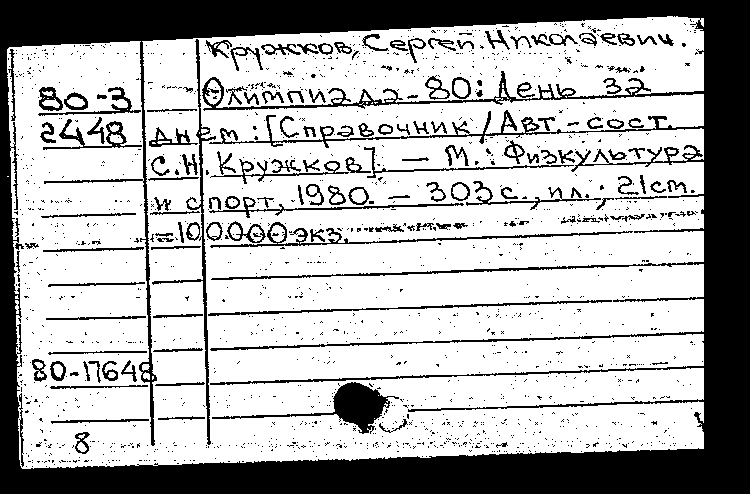 Кружков, Сергей Николаевич.
80-3 Олимпиада-80: День за
2448 днем : [Справочник / Авт.-сост.
С.Н. Кружков]. — М. : Физкультура
и спорт, 1980. — 303 с., ил. ; 21 ст.
— 100.000 экз.
80-17648
8